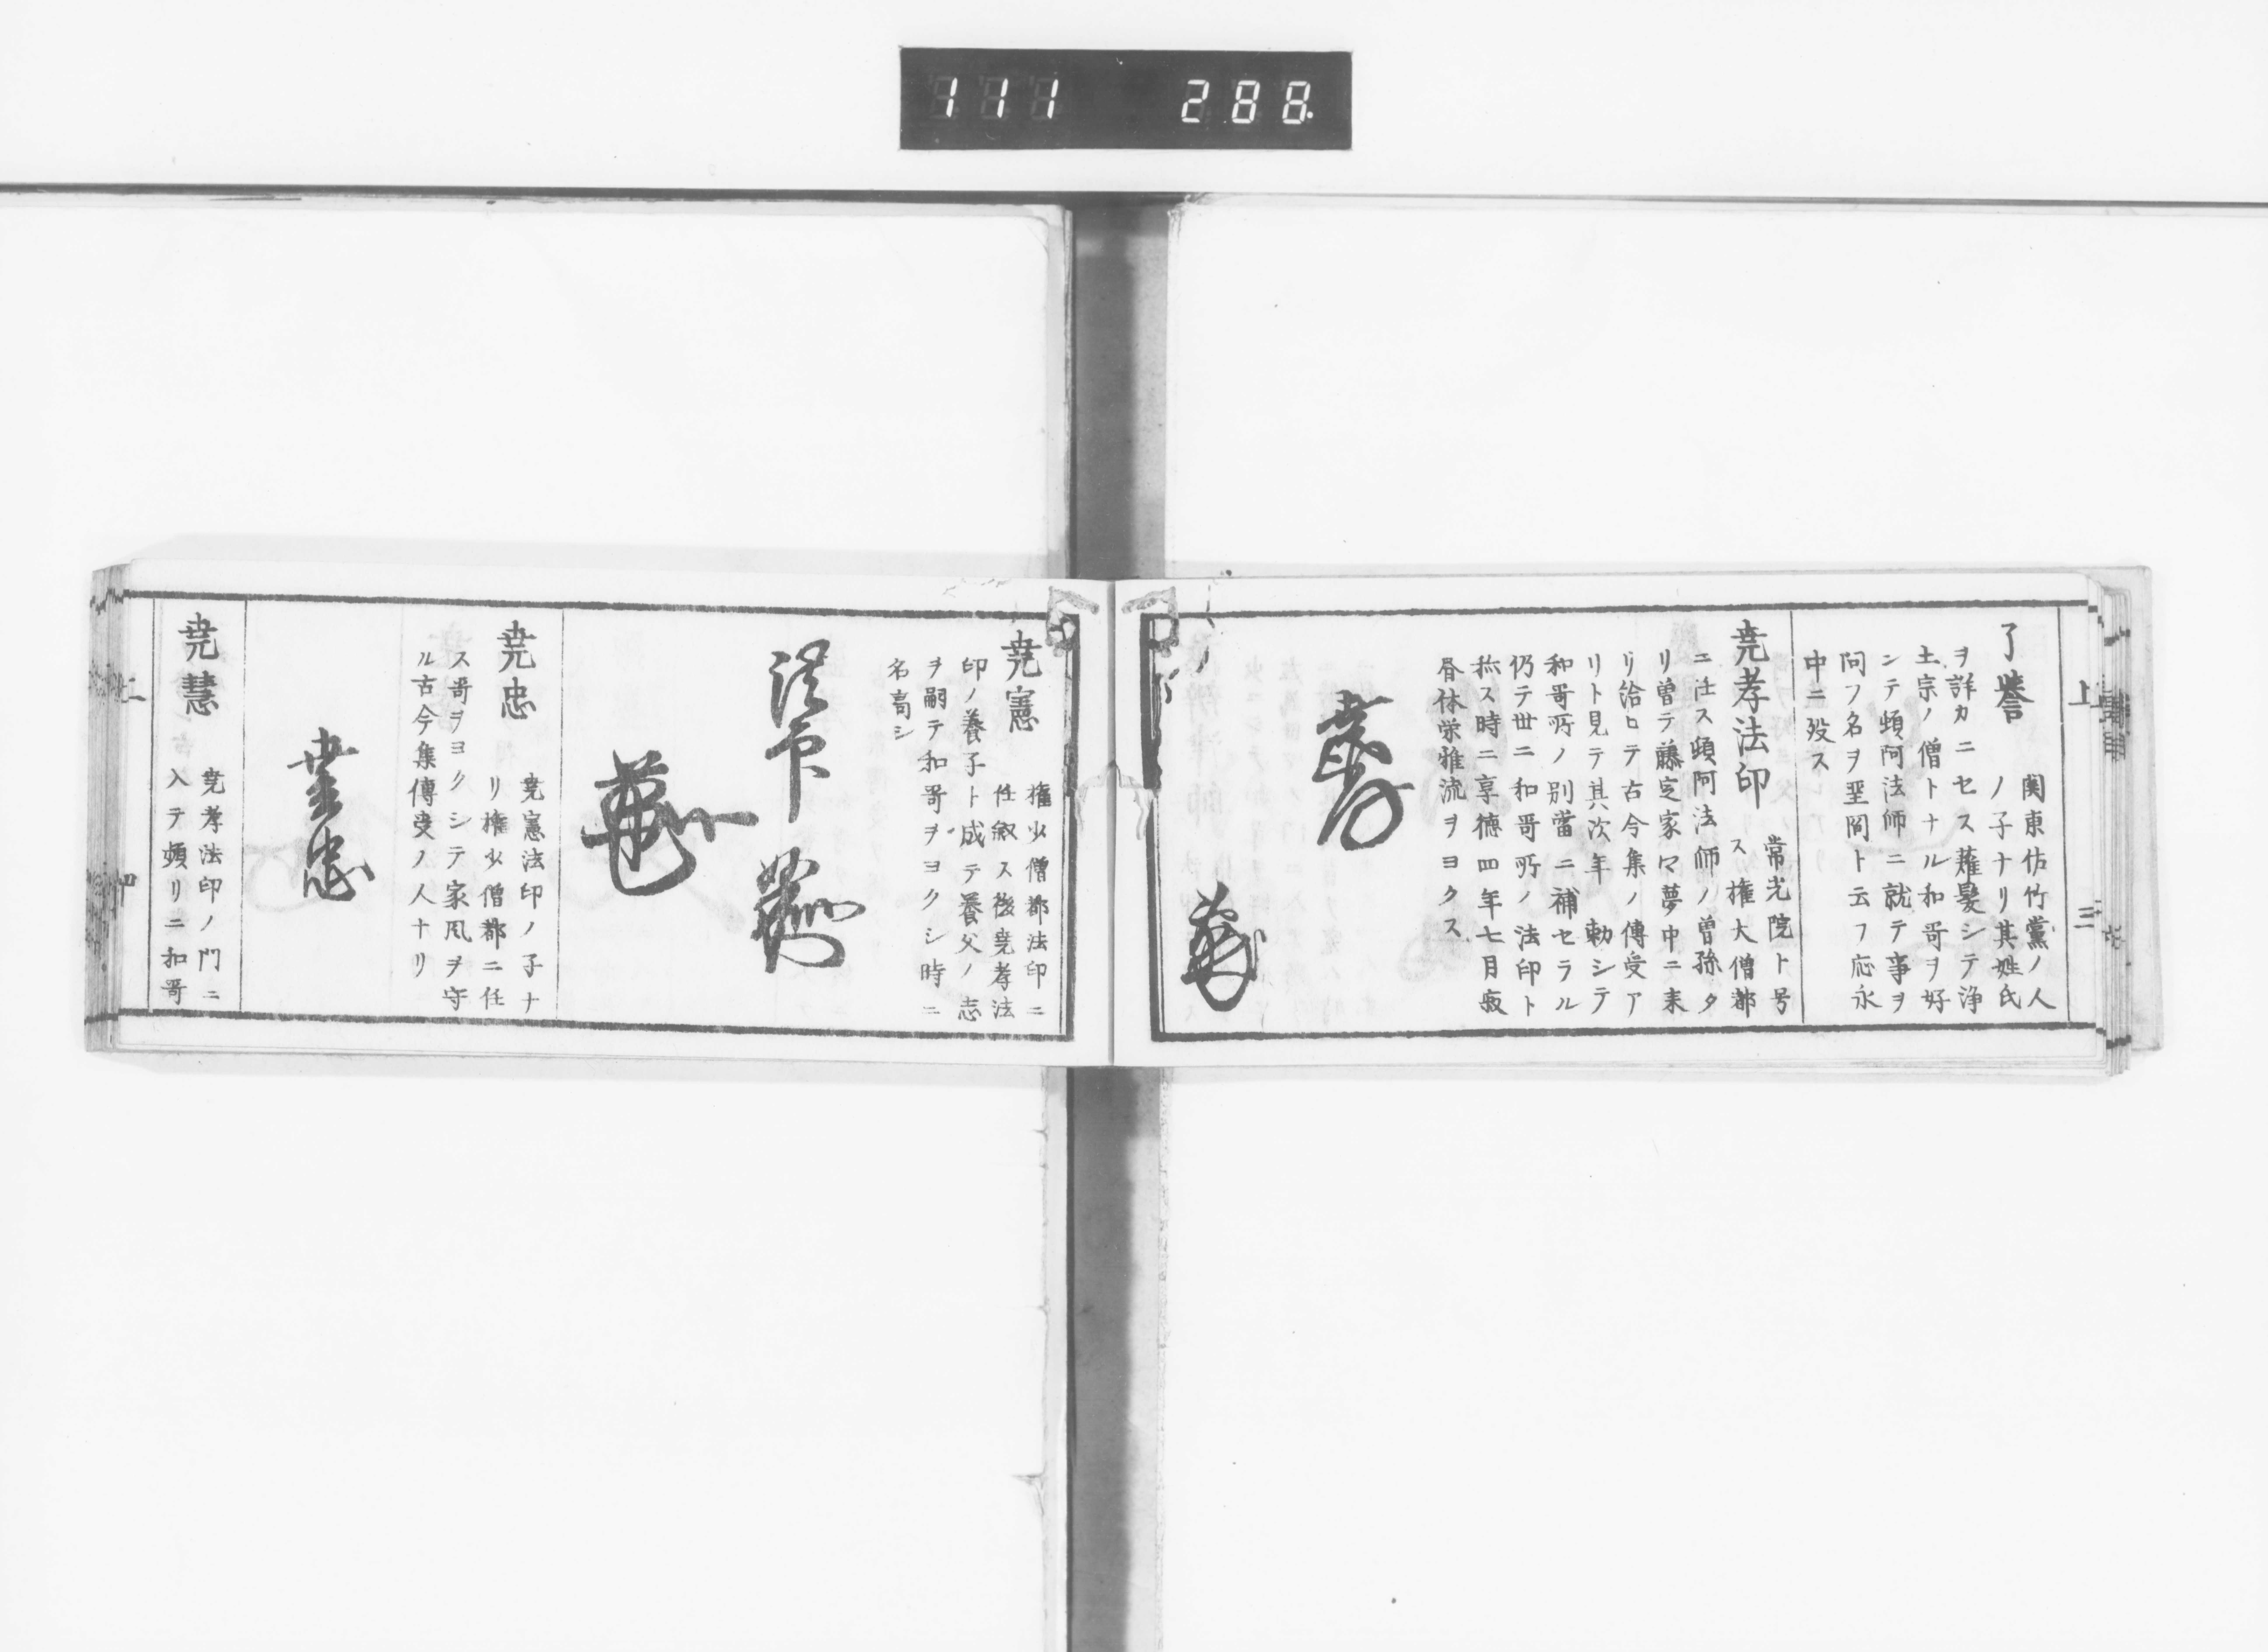 111 288
上
三
了誉
関東佐竹黨ノ人
ノ子ナリ其姓氏
ヲ詳カニセス薙髪シテ浄
土宗ノ僧トナル和哥ヲ好
ンテ頓阿法師ニ就テ事ヲ
問フ名ヲ聖冏ト云フ応永
中ニ殁ス
尭孝法印
常光院ト号
ス権大僧都
ニ任ス頓阿法師ノ曽孫タ
リ曽テ藤定家ヲ夢中ニ来
リ給ヒテ古今集ノ傳受ア
リト見テ其次年勅シテ
和哥所ノ別當ニ補セラル
仍テ世ニ和哥所ノ法印ト
称ス時ニ享徳四年七月寂
昏休栄雅流ヲヨクス
尭孝
尭憲
権少僧都法印ニ
任叙ス後尭孝法
印ノ養子ト成テ養父ノ志
ヲ嗣テ和哥ヲヨクシ時ニ
名高シ
法印
尭忠
尭憲法印ノ子ナ
リ権少僧都ニ任
ス哥ヲヨクシテ家風ヲ守
ル古今集傳受ノ人ナリ
尭忠
尭慧
尭孝法印ノ門ニ
入テ頻リニ和哥
二
四